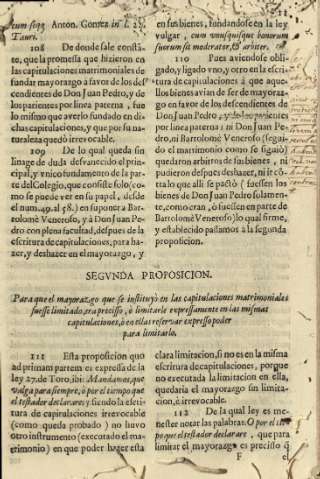 cum seqq. Anton. Gomez in l. 27.
Tauri.
108 De donde sale constã-
te, que la promessa que hizieron en
las capitulaciones matrimoniales de
dar mayorazgo à favor de los des-
cendientes de Don Juan Pedro, y de
los parientes por linea paterna, fue
lo mismo que averlo fundado en di-
chas capitulaciones, y que por su na-
turaleza quedò irrevocable.
109 De lo qual queda sin
linage de duda desvanecido el prin-
cipal, y vnico fundamento de la par-
te del Colegio, que consiste solo (co-
mo se puede ver en su papel, desde
el num. 49. al 58.) en suponer a Bar-
tolomè Veneroso, y à Don Juan Pe-
dro con plena facultad, despues de la
escritura de capitulaciones, para ha-
zer, y deshazer en el mayorazgo, y
en sus bienes, fundandose en la ley
vulgar, cum vnusquisque bonorum
suorum sit moderator, & arbiter.
110 Pues aviendose obli-
gado, y ligado vno, y otro en la escri-
tura de capitulaciones à que aque-
llos bienes avian de ser de mayoraz-
go en favor de los descendientes de
Don Juan Pedro, y de los parientes
por linea paterna; ni Don Juan Pe-
dro, ni Bartolomè Veneroso (siguiẽ-
do el matrimonio como se siguiò)
quedaron arbitros de sus bienes, ni
pudieron despues deshazer, ni ir cõ-
tra lo que alli se pactò (fuessen los
bienes de Don Juan Pedro solamen-
te, como eran, ò fuessen en parte de
Bartolomè Veneroso) lo qual firme,
y establecido passamos à la segunda
proposicion.
SEGVNDA PROPOSICION.
Para que el mayorazgo que se instituyò en las capitulaciones matrimoniales
fuesse limitado, era preciso, ò limitarle expressamente en las mismas
capitulaciones, ò en ellas reservar expresso poder
para limitarlo.
111 Esta proposicion quo
ad primam partem es expressa de la
ley 27. de Toro, ibi: Mandamos, que
valga para siempre, ò por el tiempo que
el testador declarare; y siendo la escri-
tura de capitulaciones irrevocable
(como queda probado) no huvo
otro instrumento (executado el ma-
trimonio) en que poder hazer esta
clara limitacion, si no es en la misma
escritura de capitulaciones, porque
no executada la limitacion en ella,
quedaria el mayorazgo sin limita-
cion, è irrevocable.
112 De la qual ley es me-
nester notar las palabras. O por el tiẽ-
po que el testador declarare, que para
limitar el mayorazgo es preciso q̃
F